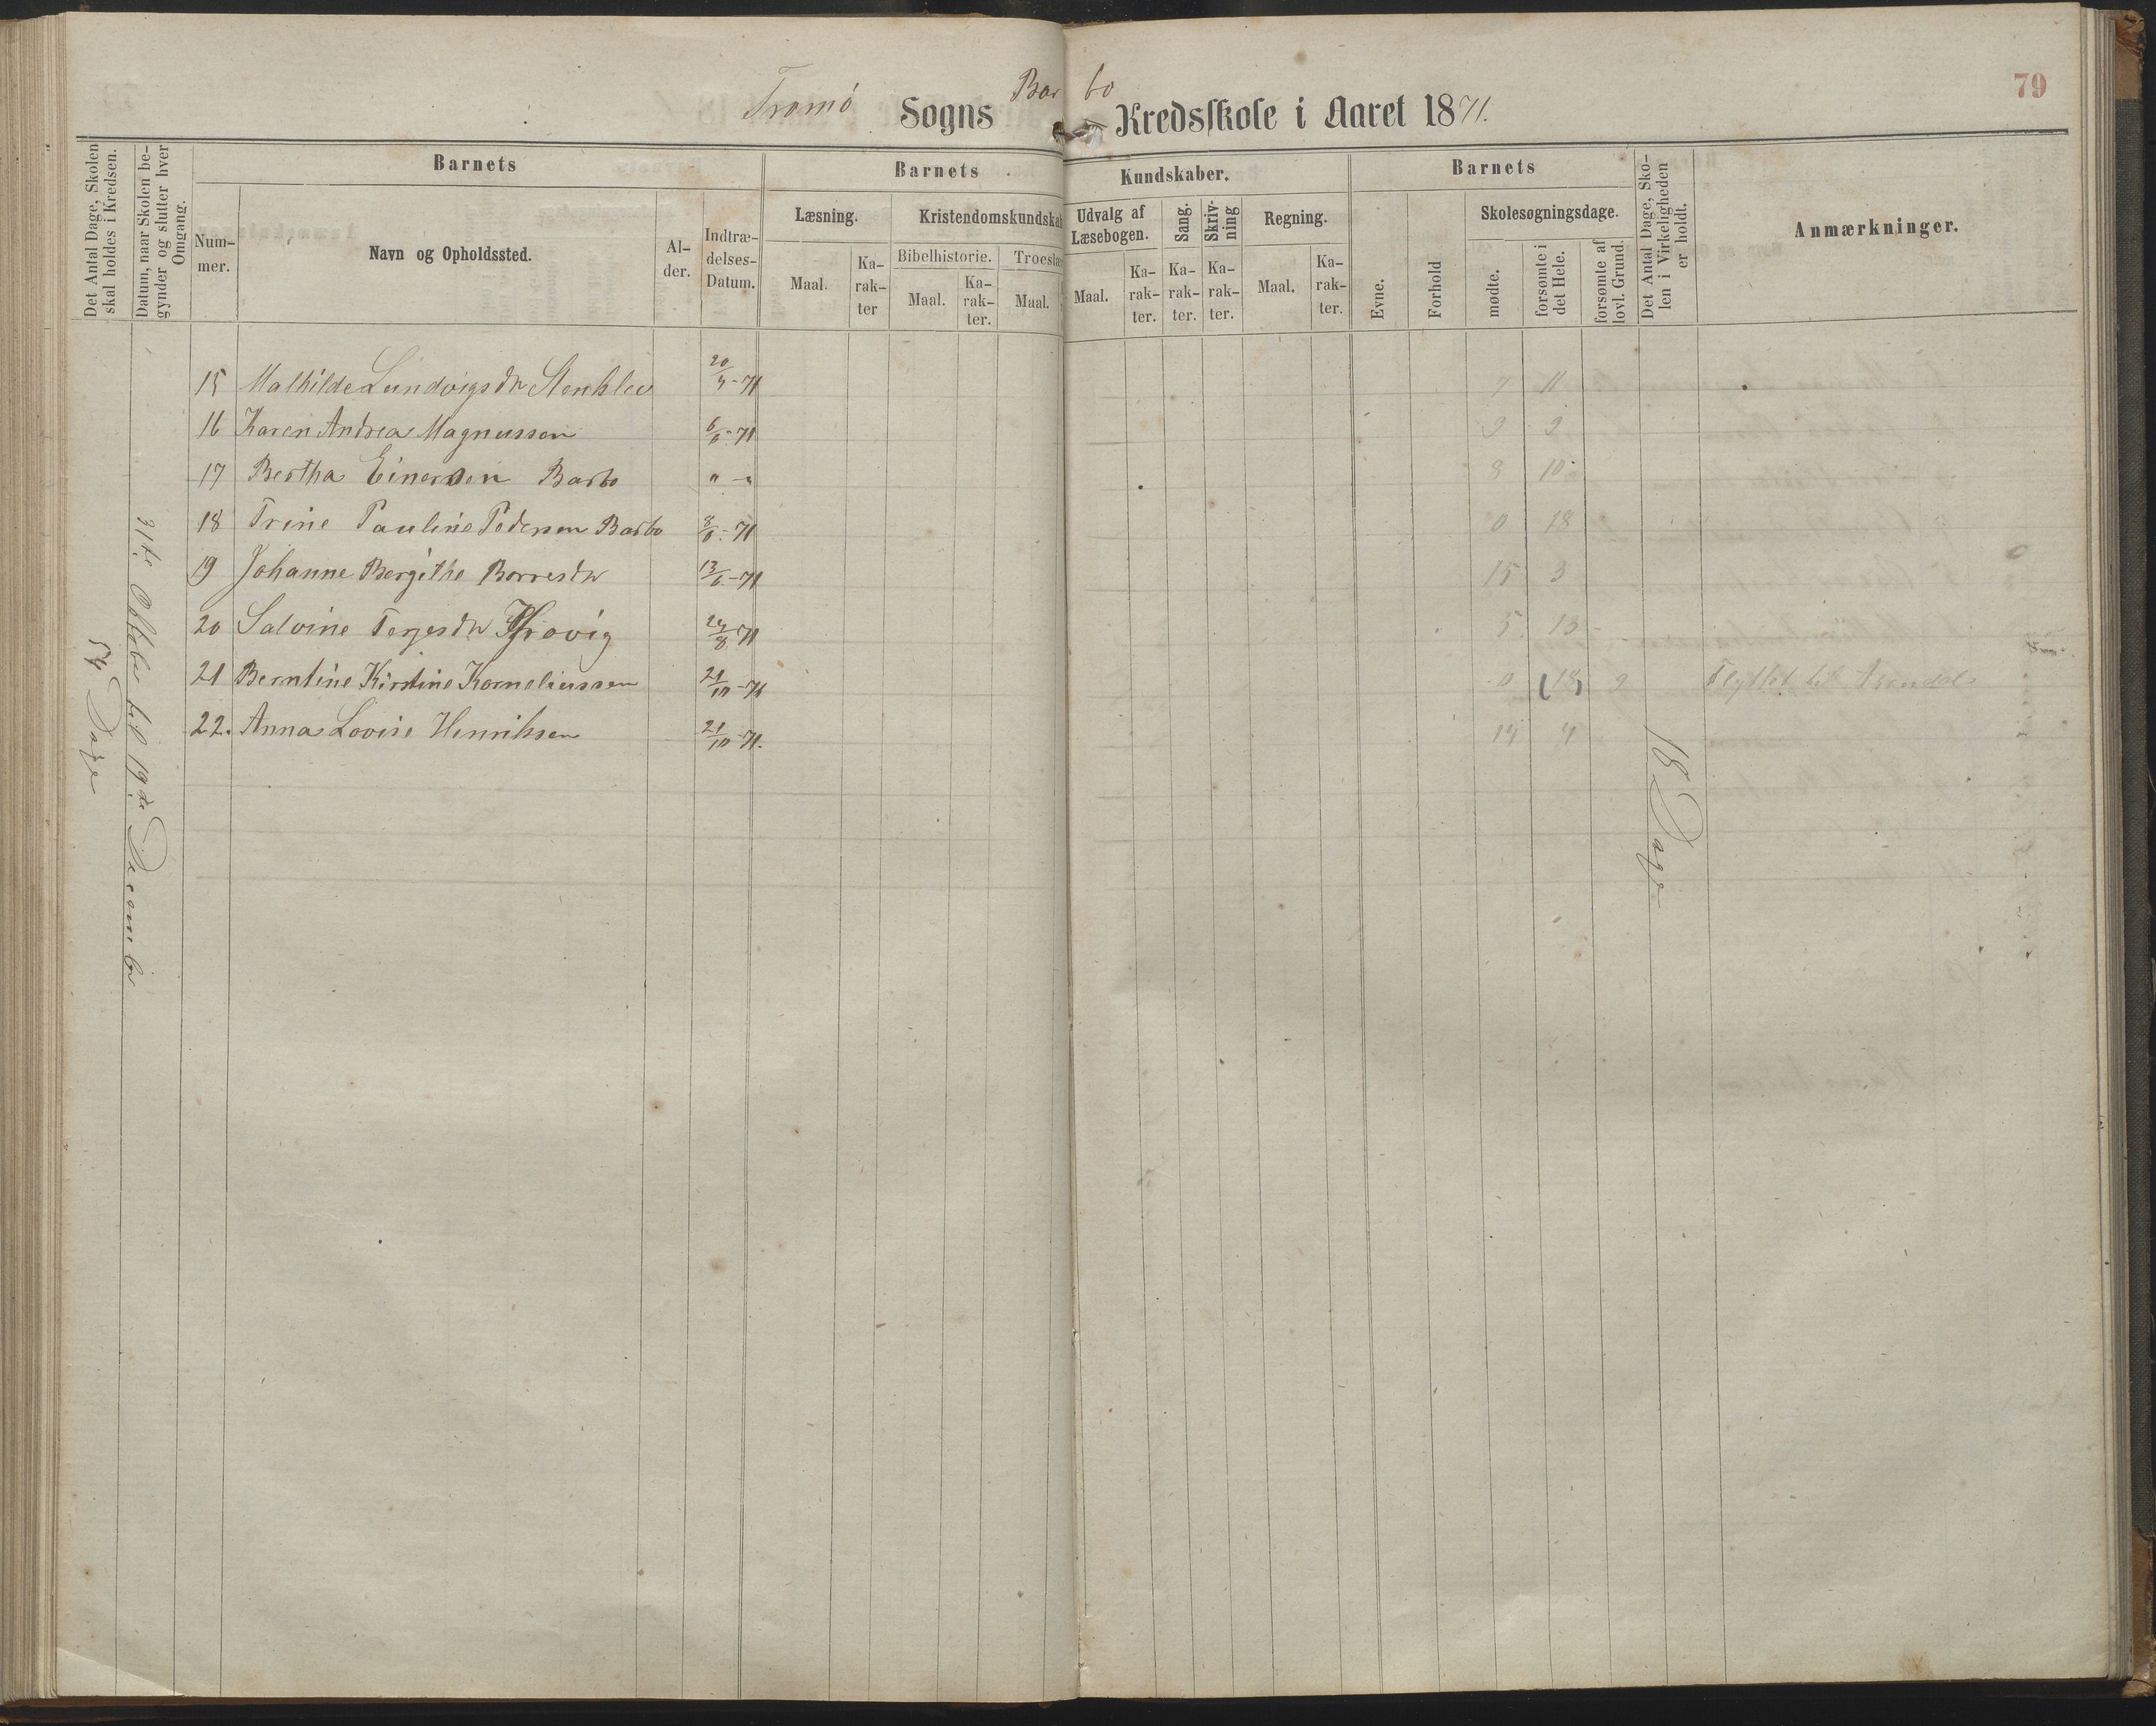 79
Tromø Sogns Barbo Kredsskole i Aaret 1871.
Det Antal Dage, Skolen skal holdes i Kredsen.
Datum, naar Skolen begynder og slutter hver Omgang.
Barnets
Nummer.
Navn og Opholdssted.
Alder.
Indtrædelses-Datum.
Barnets
Kundskaber.
Læsning.
Maal.
Karakter
Kristendomskundskab
Bibelhistorie.
Maal.
Karakter.
Troeslæ
Maal.
Udvalg af Læsebogen.
Maal.
Karakter.
Sang.
Karakter.
Skrivning
Karakter.
Regning.
Maal.
Karakter.
Barnets
Evne.
Forhold
Skolesøgningsdage.
mødte.
forsømte i det Hele.
forsømte af lovl. Grund.
Det Antal Dage, Skolen i Virkeligheden er holdt.
Anmærkninger.
54 Dage
31te Oktober til 19de December
15 Mathilde Lundvigsdtr Stenklev 20/4-71 7 11
16 Karen Andrea Magnussen 6/6-71 9 9
17 Bertha Einersen Barbo " -" 8 10
18 Trine Pauline Pedersen Barbo 8/6-71 0 18
19 Johanne Bergithe Borresdtr 13/6-71 15 3
20 Salvine Terjesdtr 71 5 13
21 Berntine Kirstine Korneliussen 21/10-71 0 (18) 9 Flyttet til Arendal
22. Anna Lovise Henriksen 21/10-71. 14 4
18 Dage